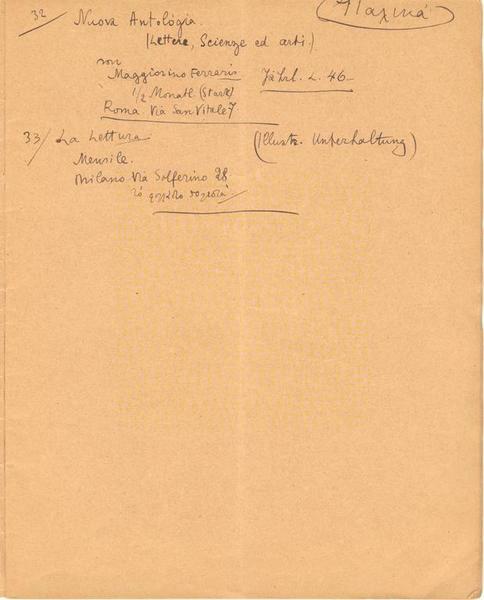 Ἰταλικά
32/ Nuova Antológia.
(Lettere, Scienze ed arti.)
von
Maggiorino Ferraris Jährl. L. 46_
1/2 Monatl. (Stark)
Roma. Via San Vitale 7.
33/ La Lettura (Illustr. Unterhaltung)
Mensile.
Milano Via Solferino 28